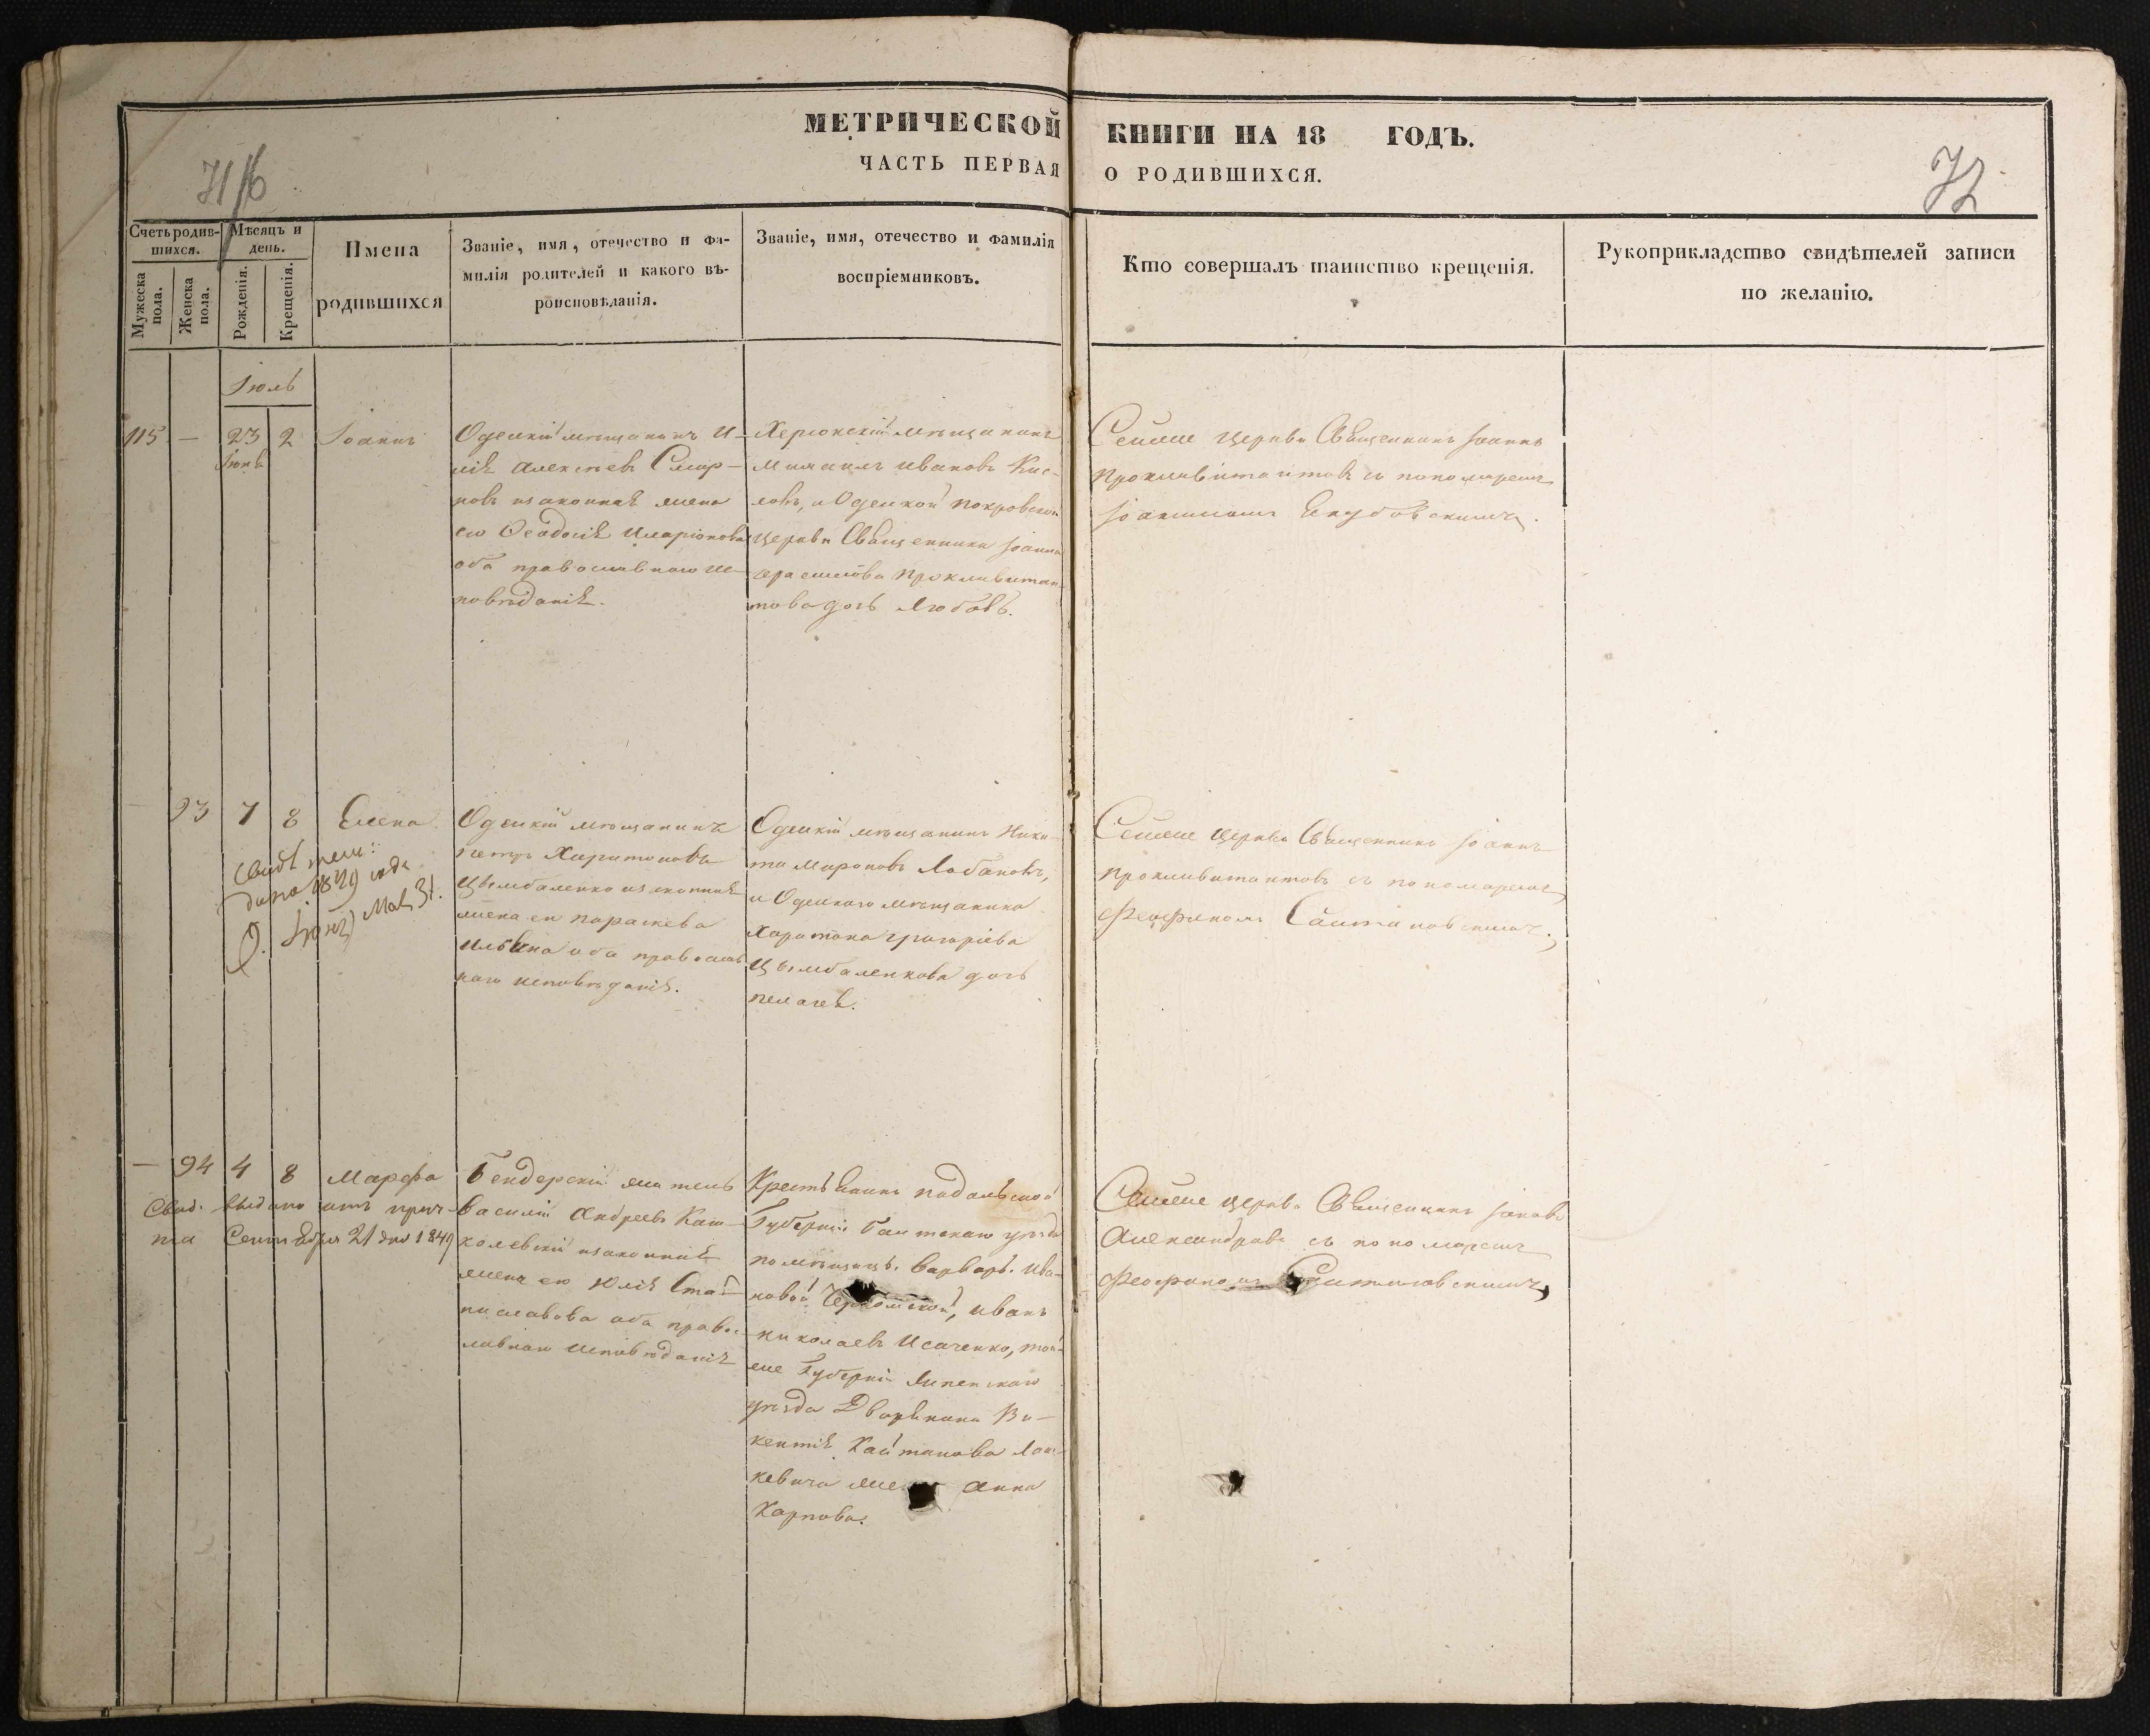 МЕТРИЧЕСКОЙ
ЧАСТЬ ПЕРВАЯ
71/6
Счетъ родив-
шихся.
Мужеска
пола.
Женска
пола.
Мѣсяцъ и
день.
Рожденія.
Крещенія.
Имена
родившихся
Званіе, имя, отечество и фа-
милія родителей и какого вѣ-
роисповѣданія.
Званіе, имя, отечество и фамилія
воспріемниковъ.
КНИГИ НА 18 ГОДЪ.
О РОДИВШИХСЯ.
72
Кто совершалъ таинство крещенія.
Рукоприкладство свидѣтелей записи
по желанію.
Іюль
115
—
23
Іюня
2
Іоаннъ
Одескій мѣщанинъ И-
лія Алексѣевъ Смир-
новъ изаконная жена
его Ѳеодосія Иларіонова
оба православнаго ис-
повѣданія.
Херсонскій мѣщанинъ
Михаилъ Ивановъ Кис-
ловъ, и Одеской Покровской
Церкви Священника Іоанна
Герасимова Проклитан-
това дочь Любовь.
Сейже Церкви Священникъ Іоаннъ
съ пономаремъ
Іоакимомъ
93
7
8
Елена
Свидѣтель:
дано 1849 года
Мая 31.
Одескій мѣщанинъ
Петръ Харитоновъ
Цымбаленко изаконная
жена его Параскева
Ильина оба православ
наго исповѣданія.
Одескій мѣщанинъ Ники-
та Мироновъ Лобановъ,
и Одескаго мѣщанина
Харитона Григоріева
Цымбаленкова дочь
Пелагея.
Сейже Церкви Священникъ Іоаннъ
съ пономаремъ
Феофиломъ
—
94
4
8
Марфа
Свид. выдано отъ прич-
та Сентября 21 дня 1849
Бендерскій житель
Василій Андреевъ
изаконная
жена его Юлія Ста-
ниславова оба право-
славнаго исповѣданія
Крестьянинъ Подольской
Губерніи Балтскаго уѣзда
помѣщицы Варвары Ива-
новой, Иванъ
Николаевъ Исаченко, той-
же Губерніи
уѣзда Дворянина Ви-
кентія Каитанова
жена Анна
Карпова.
Сейже Церкви Священникъ Іаковъ
Александровъ съ пономаремъ